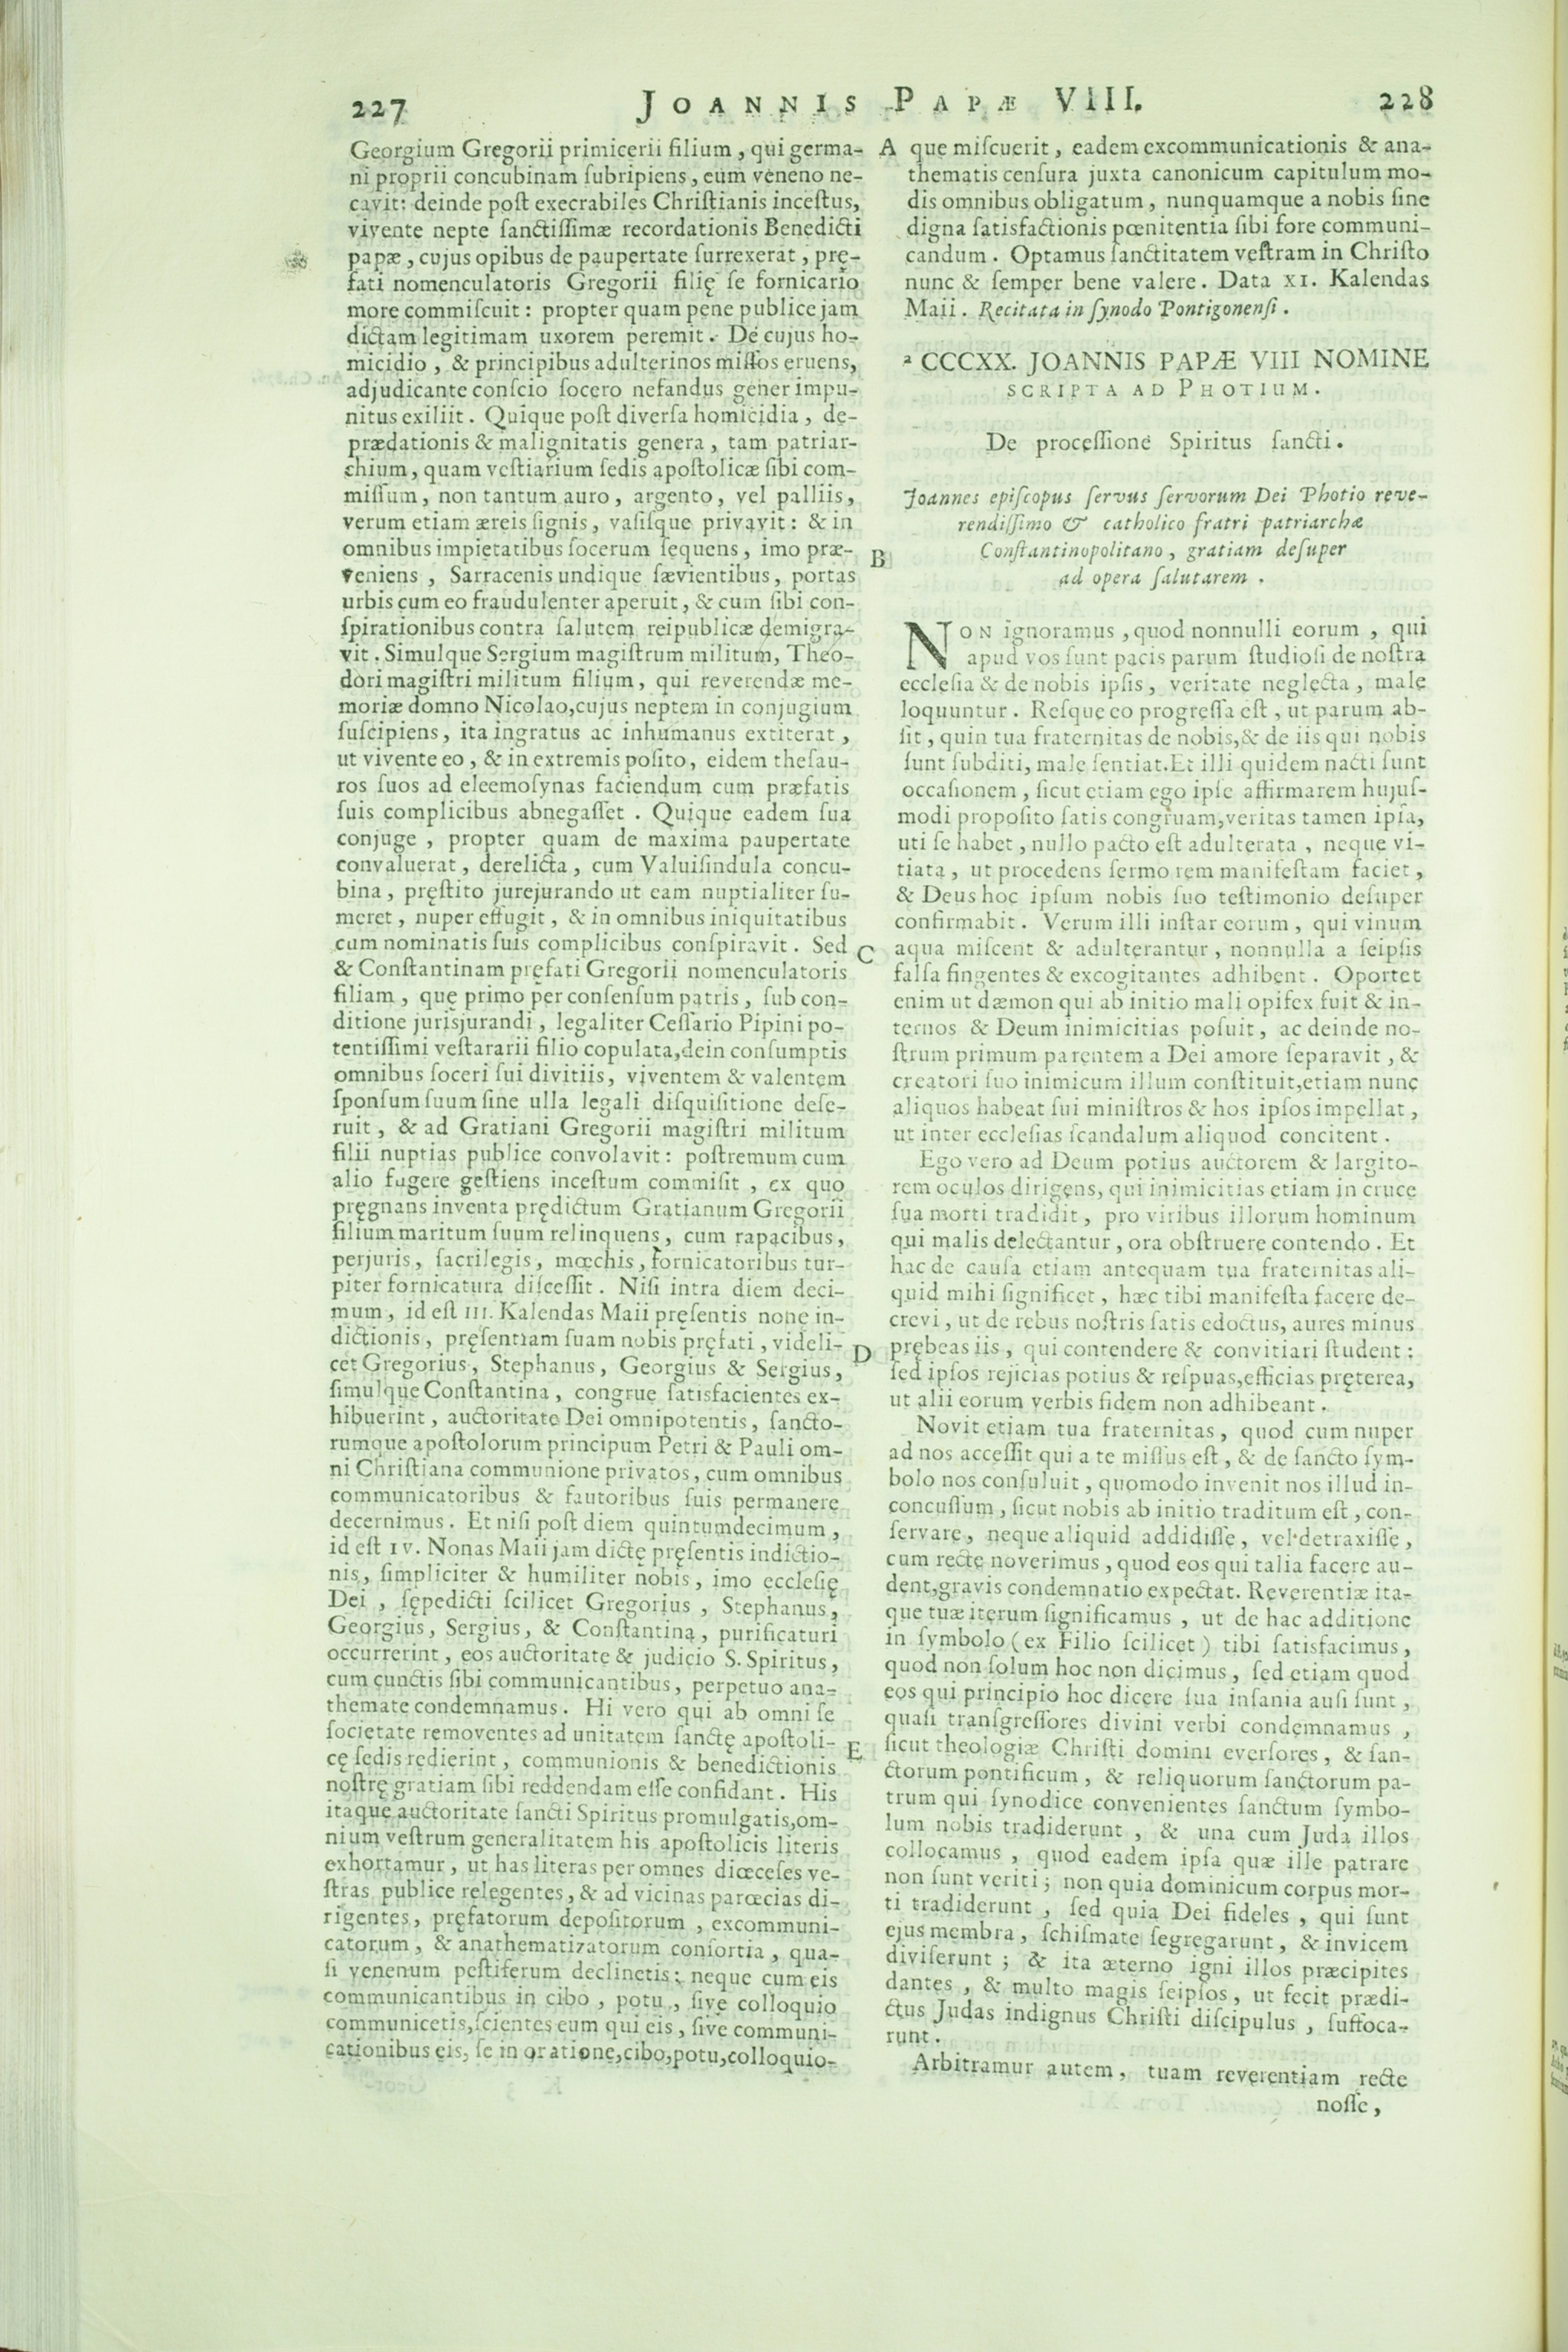 227
JOANNIS PAPÆ VIII.
228
Georgium Gregorii primicerii filium, qui germa-
ni proprii concubinam ſubripiens, eum veneno ne-
cavit: deinde poſt execrabiles Chriſtianis inceſtus,
vivente nepte ſanctiſſimæ recordationis Benedicti
papæ, cujus opibus de paupertate ſurrexerat, prę-
fati nomenculatoris Gregorii filię ſe fornicario
more commiſcuit: propter quam pene publice jam
dictam legitimam uxorem peremit. De cujus ho-
micidio, & principibus adulterinos miſſos eruens,
adjudicante conſcio ſocero nefandus gener impu-
nitus exiliit. Quique poſt diverſa homicidia, de-
prædationis & malignitatis genera, tam patriar-
chium, quam veſtiarium ſedis apoſtolicæ ſibi com-
miſſum, non tantum auro, argento, vel palliis,
verum etiam æreis ſignis, vaſiſque privavit: & in
omnibus impietatibus ſocerum ſequens, imo præ-
veniens, Sarracenis undique ſævientibus, portas
urbis cum eo fraudulenter aperuit, & cum ſibi con-
ſpirationibus contra ſalutem reipublicæ demigra-
vit. Simulque Sergium magiſtrum militum, Theo-
dori magiſtri militum filium, qui reverendæ me-
moriæ domno Nicolao, cujus neptem in conjugium
ſuſcipiens, ita ingratus ac inhumanus extiterat,
ut vivente eo, & in extremis poſito, eidem theſau-
ros ſuos ad eleemoſynas faciendum cum præfatis
ſuis complicibus abnegaſſet. Quique eadem ſua
conjuge, propter quam de maxima paupertate
convaluerat, derelicta, cum Valuiſindula concu-
bina, pręſtito jurejurando ut eam nuptialiter ſu-
meret, nuper effugit, & in omnibus iniquitatibus
cum nominatis ſuis complicibus conſpiravit. Sed
& Conſtantinam pręfati Gregorii nomenculatoris
filiam, quę primo per conſenſum patris, ſub con-
ditione jurisjurandi, legaliter Ceſſario Pipini po-
tentiſſimi veſtararii filio copulata, dein conſumptis
omnibus ſoceri ſui divitiis, viventem & valentem
ſponſum ſuum ſine ulla legali diſquiſitione deſe-
ruit, & ad Gratiani Gregorii magiſtri militum
filii nuptias publice convolavit: poſtremum cum
alio fugere geſtiens inceſtum commiſit, ex quo
pręgnans inventa prędictum Gratianum Gregorii
filium maritum ſuum relinquens, cum rapacibus,
perjuris, ſacrilegis, mœchis, fornicatoribus tur-
piter fornicatura diſceſſit. Niſi intra diem deci-
mum, id eſt III. Kalendas Maii pręſentis nonę in-
dictionis, pręſentiam ſuam nobis pręfati, videli-
cet Gregorius, Stephanus, Georgius & Sergius,
ſimulque Conſtantina, congrue ſatisfacientes ex-
hibuerint, auctoritate Dei omnipotentis, ſancto-
rumque apoſtolorum principum Petri & Pauli om-
ni Chriſtiana communione privatos, cum omnibus
communicatoribus & fautoribus ſuis permanere
decernimus. Et niſi poſt diem quintumdecimum,
id eſt IV. Nonas Maii jam dictę pręſentis indictio-
nis, ſimpliciter & humiliter nobis, imo eccleſię
Dei, ſępedicti ſcilicet Gregorius, Stephanus,
Georgius, Sergius, & Conſtantina, purificaturi
occurrerint, eos auctoritate & judicio S. Spiritus,
cum cunctis ſibi communicantibus, perpetuo ana-
themate condemnamus. Hi vero qui ab omni ſe
ſocietate removentes ad unitatem ſanctę apoſtoli-
cę ſedis redierint, communionis & benedictionis
noſtrę gratiam ſibi reddendam eſſe confidant. His
itaque auctoritate ſancti Spiritus promulgatis, om-
nium veſtrum generalitatem his apoſtolicis literis
exhortamur, ut has literas per omnes diœceſes ve-
ſtras publice relegentes, & ad vicinas parœcias di-
rigentes, pręfatorum depoſitorum, excommuni-
catorum, & anathematizatorum conſortia, qua-
ſi venenum peſtiferum declinetis: neque cum eis
communicantibus in cibo, potu, ſive colloquio
communicetis, ſcientes eum qui eis, ſive communi-
cationibus eis, ſe in oratione, cibo, potu, colloquio-
A
B
C
D
E
que miſcuerit, eadem excommunicationis & ana-
thematis cenſura juxta canonicum capitulum mo-
dis omnibus obligatum, nunquamque a nobis ſine
digna ſatisfactionis pœnitentia ſibi fore communi-
candum. Optamus ſanctitatem veſtram in Chriſto
nunc & ſemper bene valere. Data XI. Kalendas
Maii. Recitata in ſynodo Pontigonenſi.
ª CCCXX. JOANNIS PAPÆ VIII NOMINE
SCRIPTA AD PHOTIUM.
De proceſſione Spiritus ſancti.
Joannes epiſcopus ſervus ſervorum Dei Photio reve-
rendiſſimo & catholico fratri patriarchæ
Conſtantinopolitano, gratiam deſuper
ad opera ſalutarem.
NON ignoramus, quod nonnulli eorum, qui
apud vos ſunt pacis parum ſtudioſi de noſtra
eccleſia & de nobis ipſis, veritate neglecta, male
loquuntur. Reſque eo progreſſa eſt, ut parum ab-
ſit, quin tua fraternitas de nobis, & de iis qui nobis
ſunt ſubditi, male ſentiat. Et illi quidem nacti ſunt
occaſionem, ſicut etiam ego ipſe affirmarem hujuſ-
modi propoſito ſatis congruam, veritas tamen ipſa,
uti ſe habet, nullo pacto eſt adulterata, neque vi-
tiata, ut procedens ſermo rem manifeſtam faciet,
& Deus hoc ipſum nobis ſuo teſtimonio deſuper
confirmabit. Verum illi inſtar eorum, qui vinum
aqua miſcent & adulterantur, nonnulla a ſeipſis
falſa fingentes & excogitantes adhibent. Oportet
enim ut dæmon qui ab initio mali opifex fuit & in-
ter nos & Deum inimicitias poſuit, ac deinde no-
ſtrum primum parentem a Dei amore ſeparavit, &
creatori ſuo inimicum illum conſtituit, etiam nunc
aliquos habeat ſui miniſtros & hos ipſos impellat,
ut inter eccleſias ſcandalum aliquod concitent.
Ego vero ad Deum potius auctorem & largito-
rem oculos dirigens, qui inimicitias etiam in cruce
ſua morti tradidit, pro viribus illorum hominum
qui malis delectantur, ora obſtruere contendo. Et
hac de cauſa etiam antequam tua fraternitas ali-
quid mihi ſignificet, hæc tibi manifeſta facere de-
crevi, ut de rebus noſtris ſatis edoctus, aures minus
prębeas iis, qui contendere & convitiari ſtudent:
ſed ipſos rejicias potius & reſpuas, efficias pręterea,
ut alii eorum verbis fidem non adhibeant.
Novit etiam tua fraternitas, quod cum nuper
ad nos acceſſit qui a te miſſus eſt, & de ſancto ſym-
bolo nos conſuluit, quomodo invenit nos illud in-
concuſſum, ſicut nobis ab initio traditum eſt, con-
ſervare, neque aliquid addidiſſe, vel detraxiſſe,
cum recte noverimus, quod eos qui talia facere au-
dent, gravis condemnatio expectat. Reverentiæ ita-
que tuæ iterum ſignificamus, ut de hac additione
in ſymbolo (ex Filio ſcilicet) tibi ſatisfacimus,
quod non ſolum hoc non dicimus, ſed etiam quod
eos qui principio hoc dicere ſua inſania auſi ſunt,
quaſi tranſgreſſores divini verbi condemnamus,
ſicut theologiæ Chriſti domini everſores, & ſan-
ctorum pontificum, & reliquorum ſanctorum pa-
trum qui ſynodice convenientes ſanctum ſymbo-
lum nobis tradiderunt, & una cum Juda illos
collocamus, quod eadem ipſa quæ ille patrare
non ſunt veriti; non quia dominicum corpus mor-
ti tradiderunt, ſed quia Dei fideles, qui ſunt
ejus membra, ſchiſmate ſegregarunt, & invicem
diviſerunt; & ita æterno igni illos præcipites
dantes, & multo magis ſeipſos, ut fecit prædi-
ctus Judas indignus Chriſti diſcipulus, ſuffoca-
runt.
Arbitramur autem, tuam reverentiam recte
noſſe,